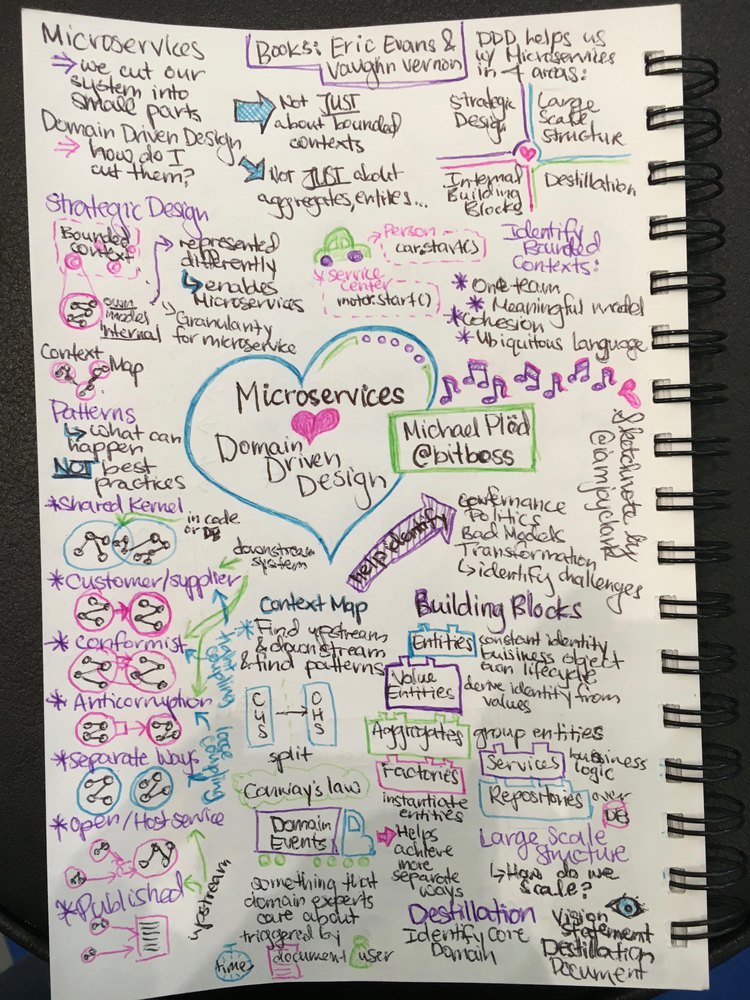 Microservices
⇒ we cut our
system into
small parts
Domain Driven Design
⇒ how do I
cut them?
Books: Eric Evans &
Vaughn Vernon
Not JUST
about bounded
contexts
Not JUST about
aggregates, entities...
DDD helps us
w/ Microservices
in 4 areas:
Strategic
Design
Large
Scale
Structure
Internal
Building
Blocks
Destillation
Strategic Design
Bounded
context
own
models
internal
represented
differently
enables
Microservices
Granularity
for microservice
Person
car.start()
Service
center
motor.start()
Identify
Bounded
Contexts:
* One team
* Meaningful model
* Cohesion
* Ubiquitous language
Context
Map
Patterns
what can
happen
NOT best
practices
Microservices
Domain
Driven
Design
Michael Plöd
@bitboss
Sketchnote by
* Shared Kernel
in code
or DB
downstream
system
* Customer/supplier
* Conformist
* Anticorruption
coupling
* Separate Ways
coupling
* Open/Host service
* Published
upstream
help identify
Governance
Politics
Bad Models
Transformation
identify challenges
Context Map
* Find upstream
& downstream
& find patterns
C → O
U H
S S
split
Conway's law
Domain
Events
something that
domain experts
care about
triggered by
time
document
user
Helps
achieve
more
separate
ways
Building Blocks
Entities
constant identity
business object
own lifecycle
Value
Entities
derive identity from
values
Aggregates
group entities
Factories
instantiate
entities
Services
business
logic
Repositories
over
DB
Large Scale
Structure
How do we
scale?
Destillation
Identify core
Domain
Vision
Statement
Destillation
Document